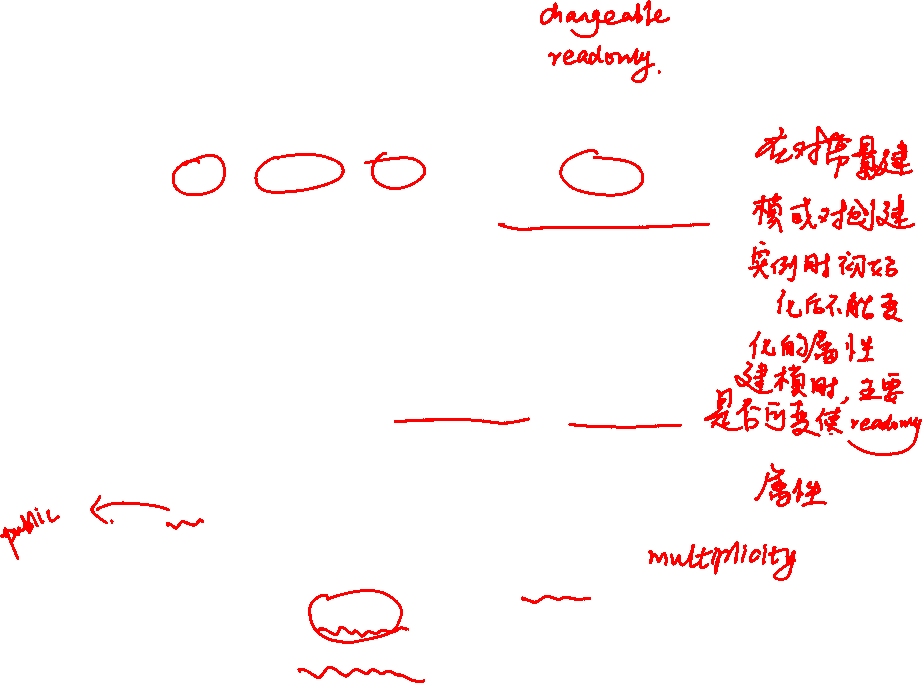 changeable
readonly.
在对常量建
模或对创建
实例时初始
化后不能变
化的属性
建模时,主要
是否可变使 readonly
属性
public
multiplicity